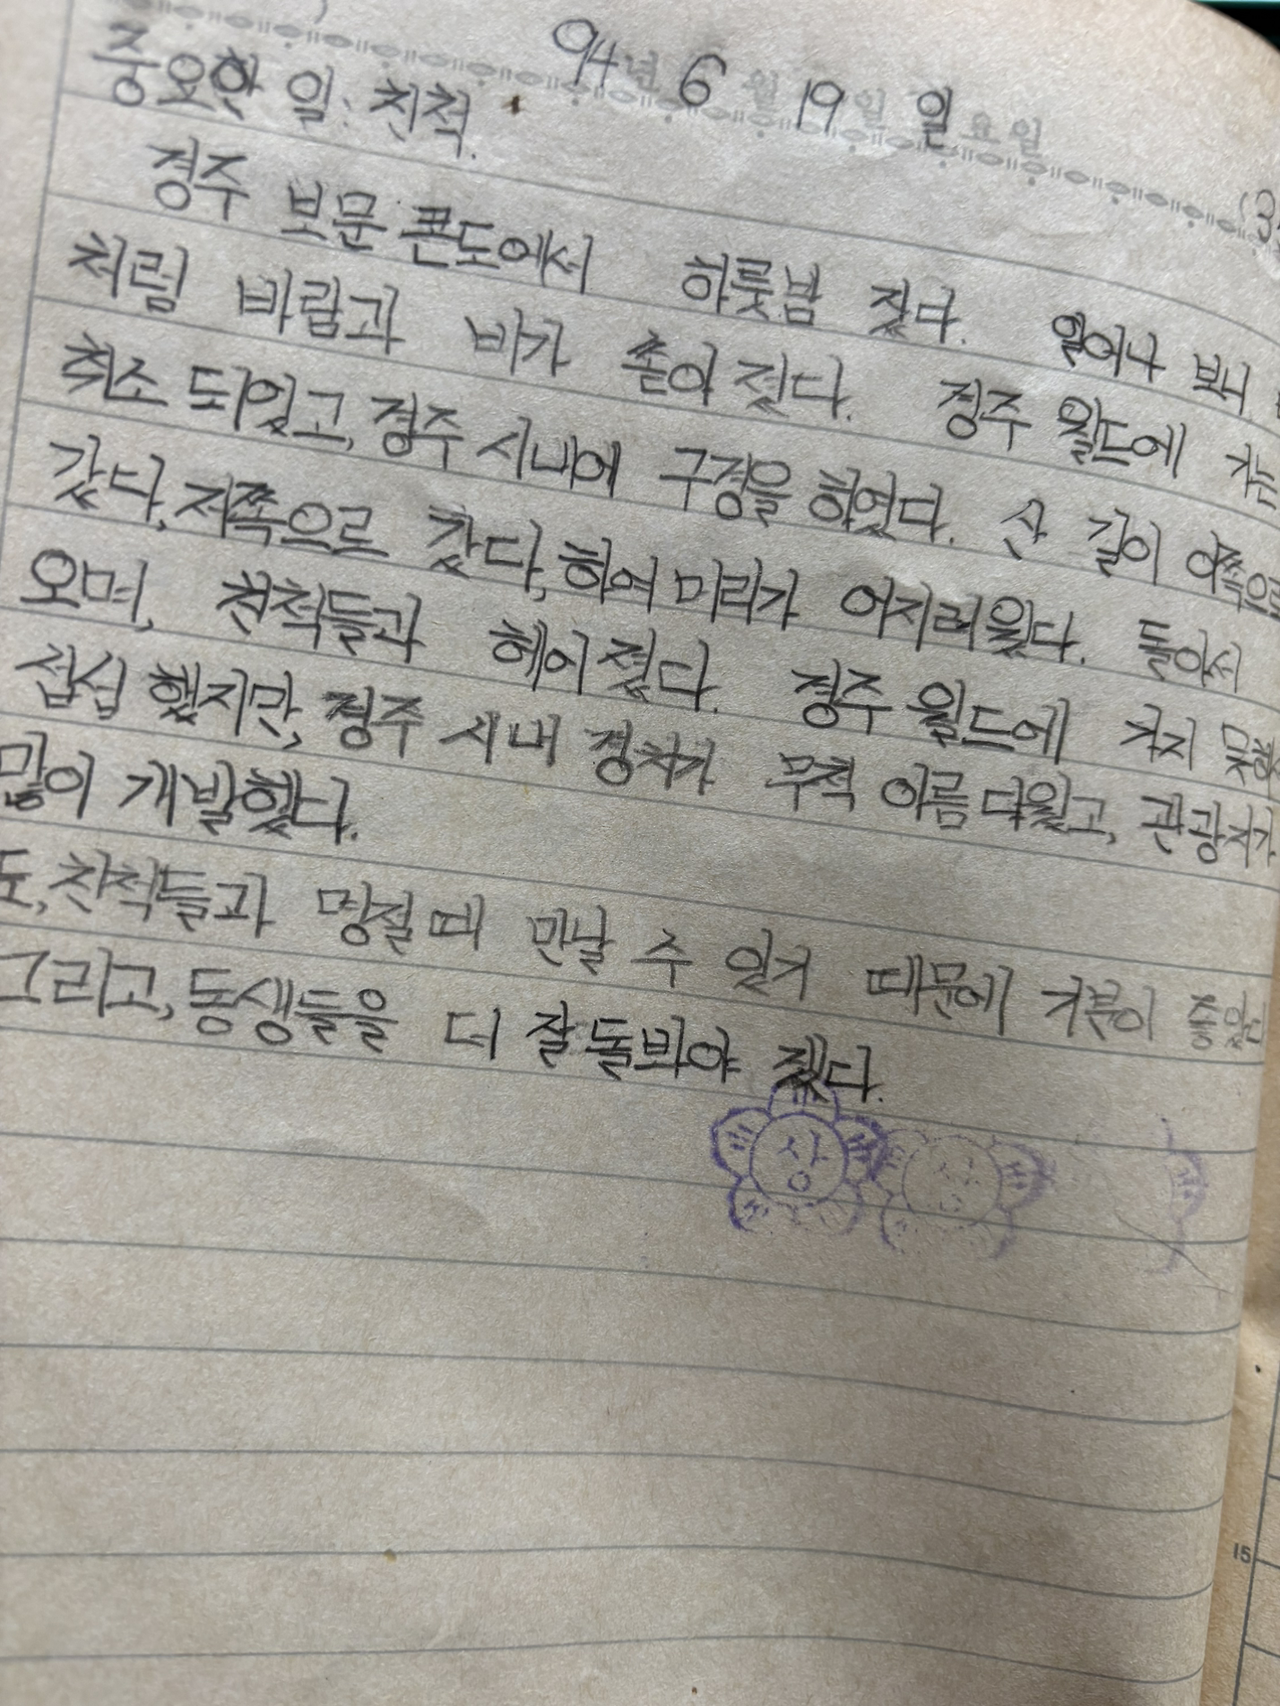 94년 6월 19일 일요일
중요한 일: 친척.
경주 보문 콘도에서 하룻밤 잤다. 일어나 보니
처럼 바람과 비가 쏟아 졌다. 경주 월드에 가는
취소 되었고, 경주 시내에 구경을 하였다. 산 길이 이쪽으로
갔다, 저쪽으로 갔다, 하여 머리가 어지러웠다. 돌아서
오며, 친척들과 헤어 졌다. 경주 월드에 가지 못해
섭섭 했지만, 경주 시내 경치가 무척 아름 다웠고, 관광지가
많이 개발했다.
도, 친척들과 명절 때 만날 수 있거 때문에 기분이 좋았다
그리고, 동생들을 더 잘 돌봐야 겠다.
상
상
15